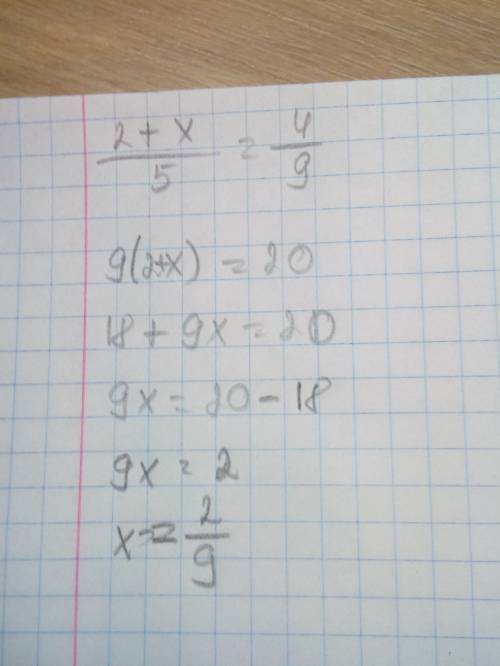 2 + x / 5 = 4 / 9
9(2+x) = 20
18 + 9x = 20
9x = 20 - 18
9x = 2
x = 2 / 9